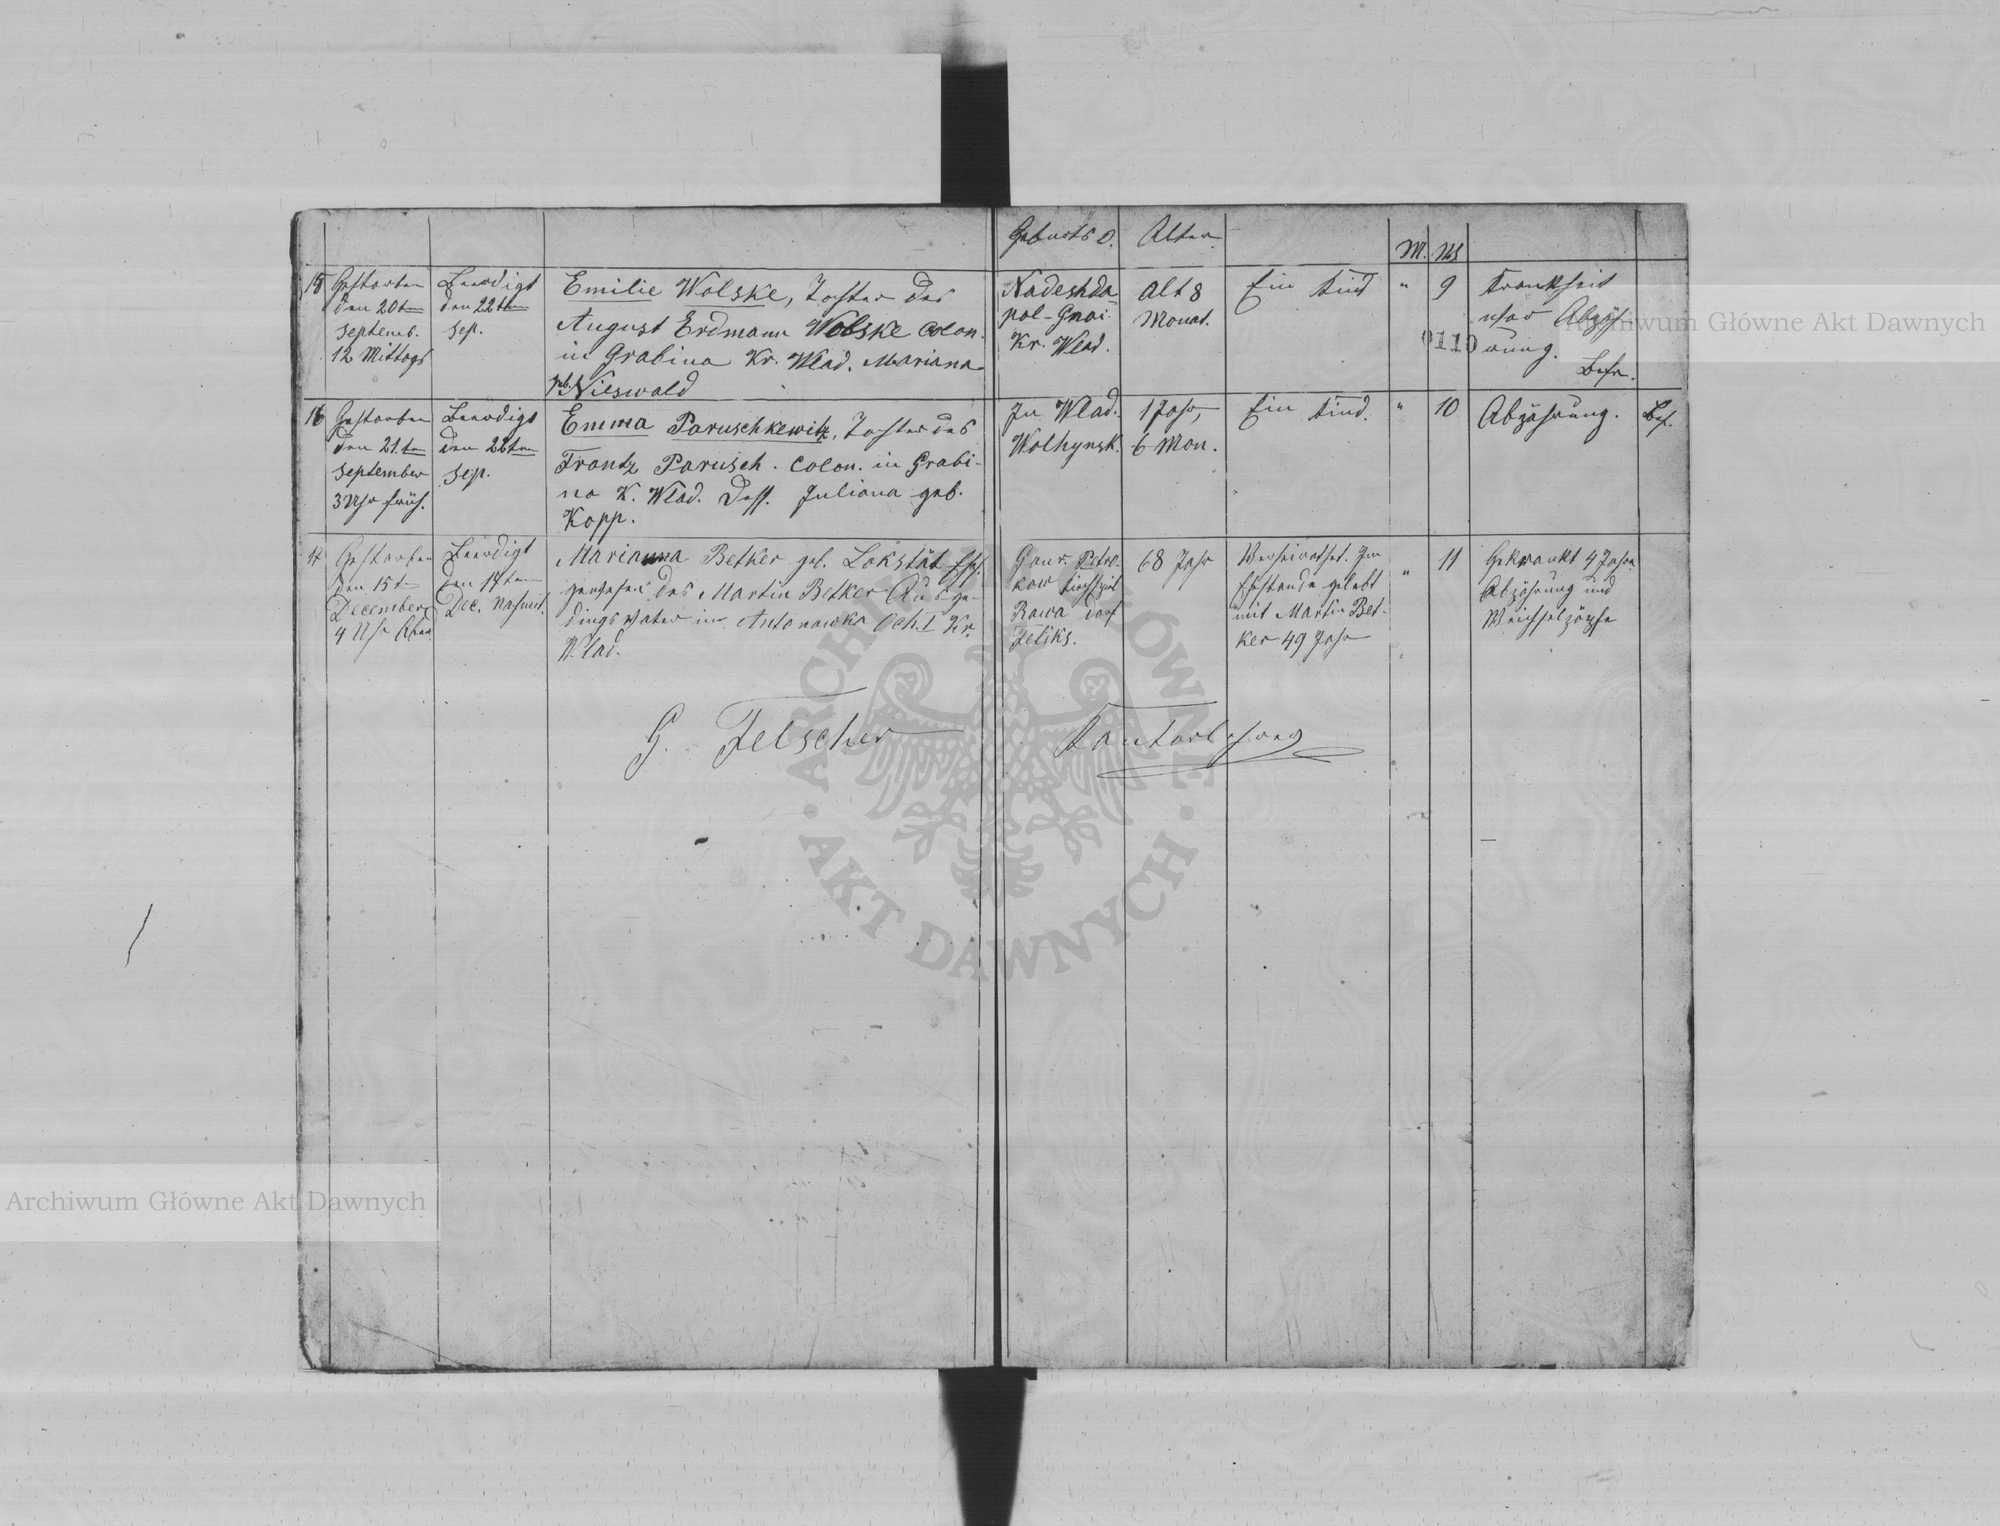 Geburts O. Alter M. W
15 Gestorben den 20ten Septemb. 12 Mittags
Beerdigt den 22ten Sep.
Emilie Wolske, Tochter des
August Erdmann Wolske Colon.
in Grabina Kr. Wlad. Mariana
geb. Nieswald
Nadeshda
pol-Gnoi
Kr. Wlad.
Alt 8
Monat.
Ein Kind
" 9
Krankheit
war Abzeh
rung.
0110
16 Gestorben
den 21.ten
September
3 Uhr früh.
Beerdigt
den 22ten
Sep.
Emma Paruschkewitz, Tochter des
Frantz Parusch. Colon. in Grabi-
na K. Wlad. Dess. Juliana geb.
Kopp.
In Wlad.
Wolhynsk.
1 Jahr,
6 Mon.
Ein Kind.
" 10
Abzährung.
Gestorben
den 15t
December
4 Uhr Aben
Beerdigt
den 17ten
Dec. Nachmit.
Marianna Betker geb. Lokstät
des Martin Betker Ausge-
dings Vater in Antonowka Och. I Kr.
Wlad.
Gouv. Petro-
kow Kirchspiel
Rawa Dorf
Zeliks.
68 Jahr
Verheirathet. Im
Ehestande gelebt
mit Martin Bet-
ker 49 Jahr
" 11
Gekrankt 4 Jahre
Abzährung und
Weichselzöpfe
G. Felscher
Archiwum Główne Akt Dawnych
ARCHIWUM GŁÓWNE AKT DAWNYCH
Archiwum Główne Akt Dawnych